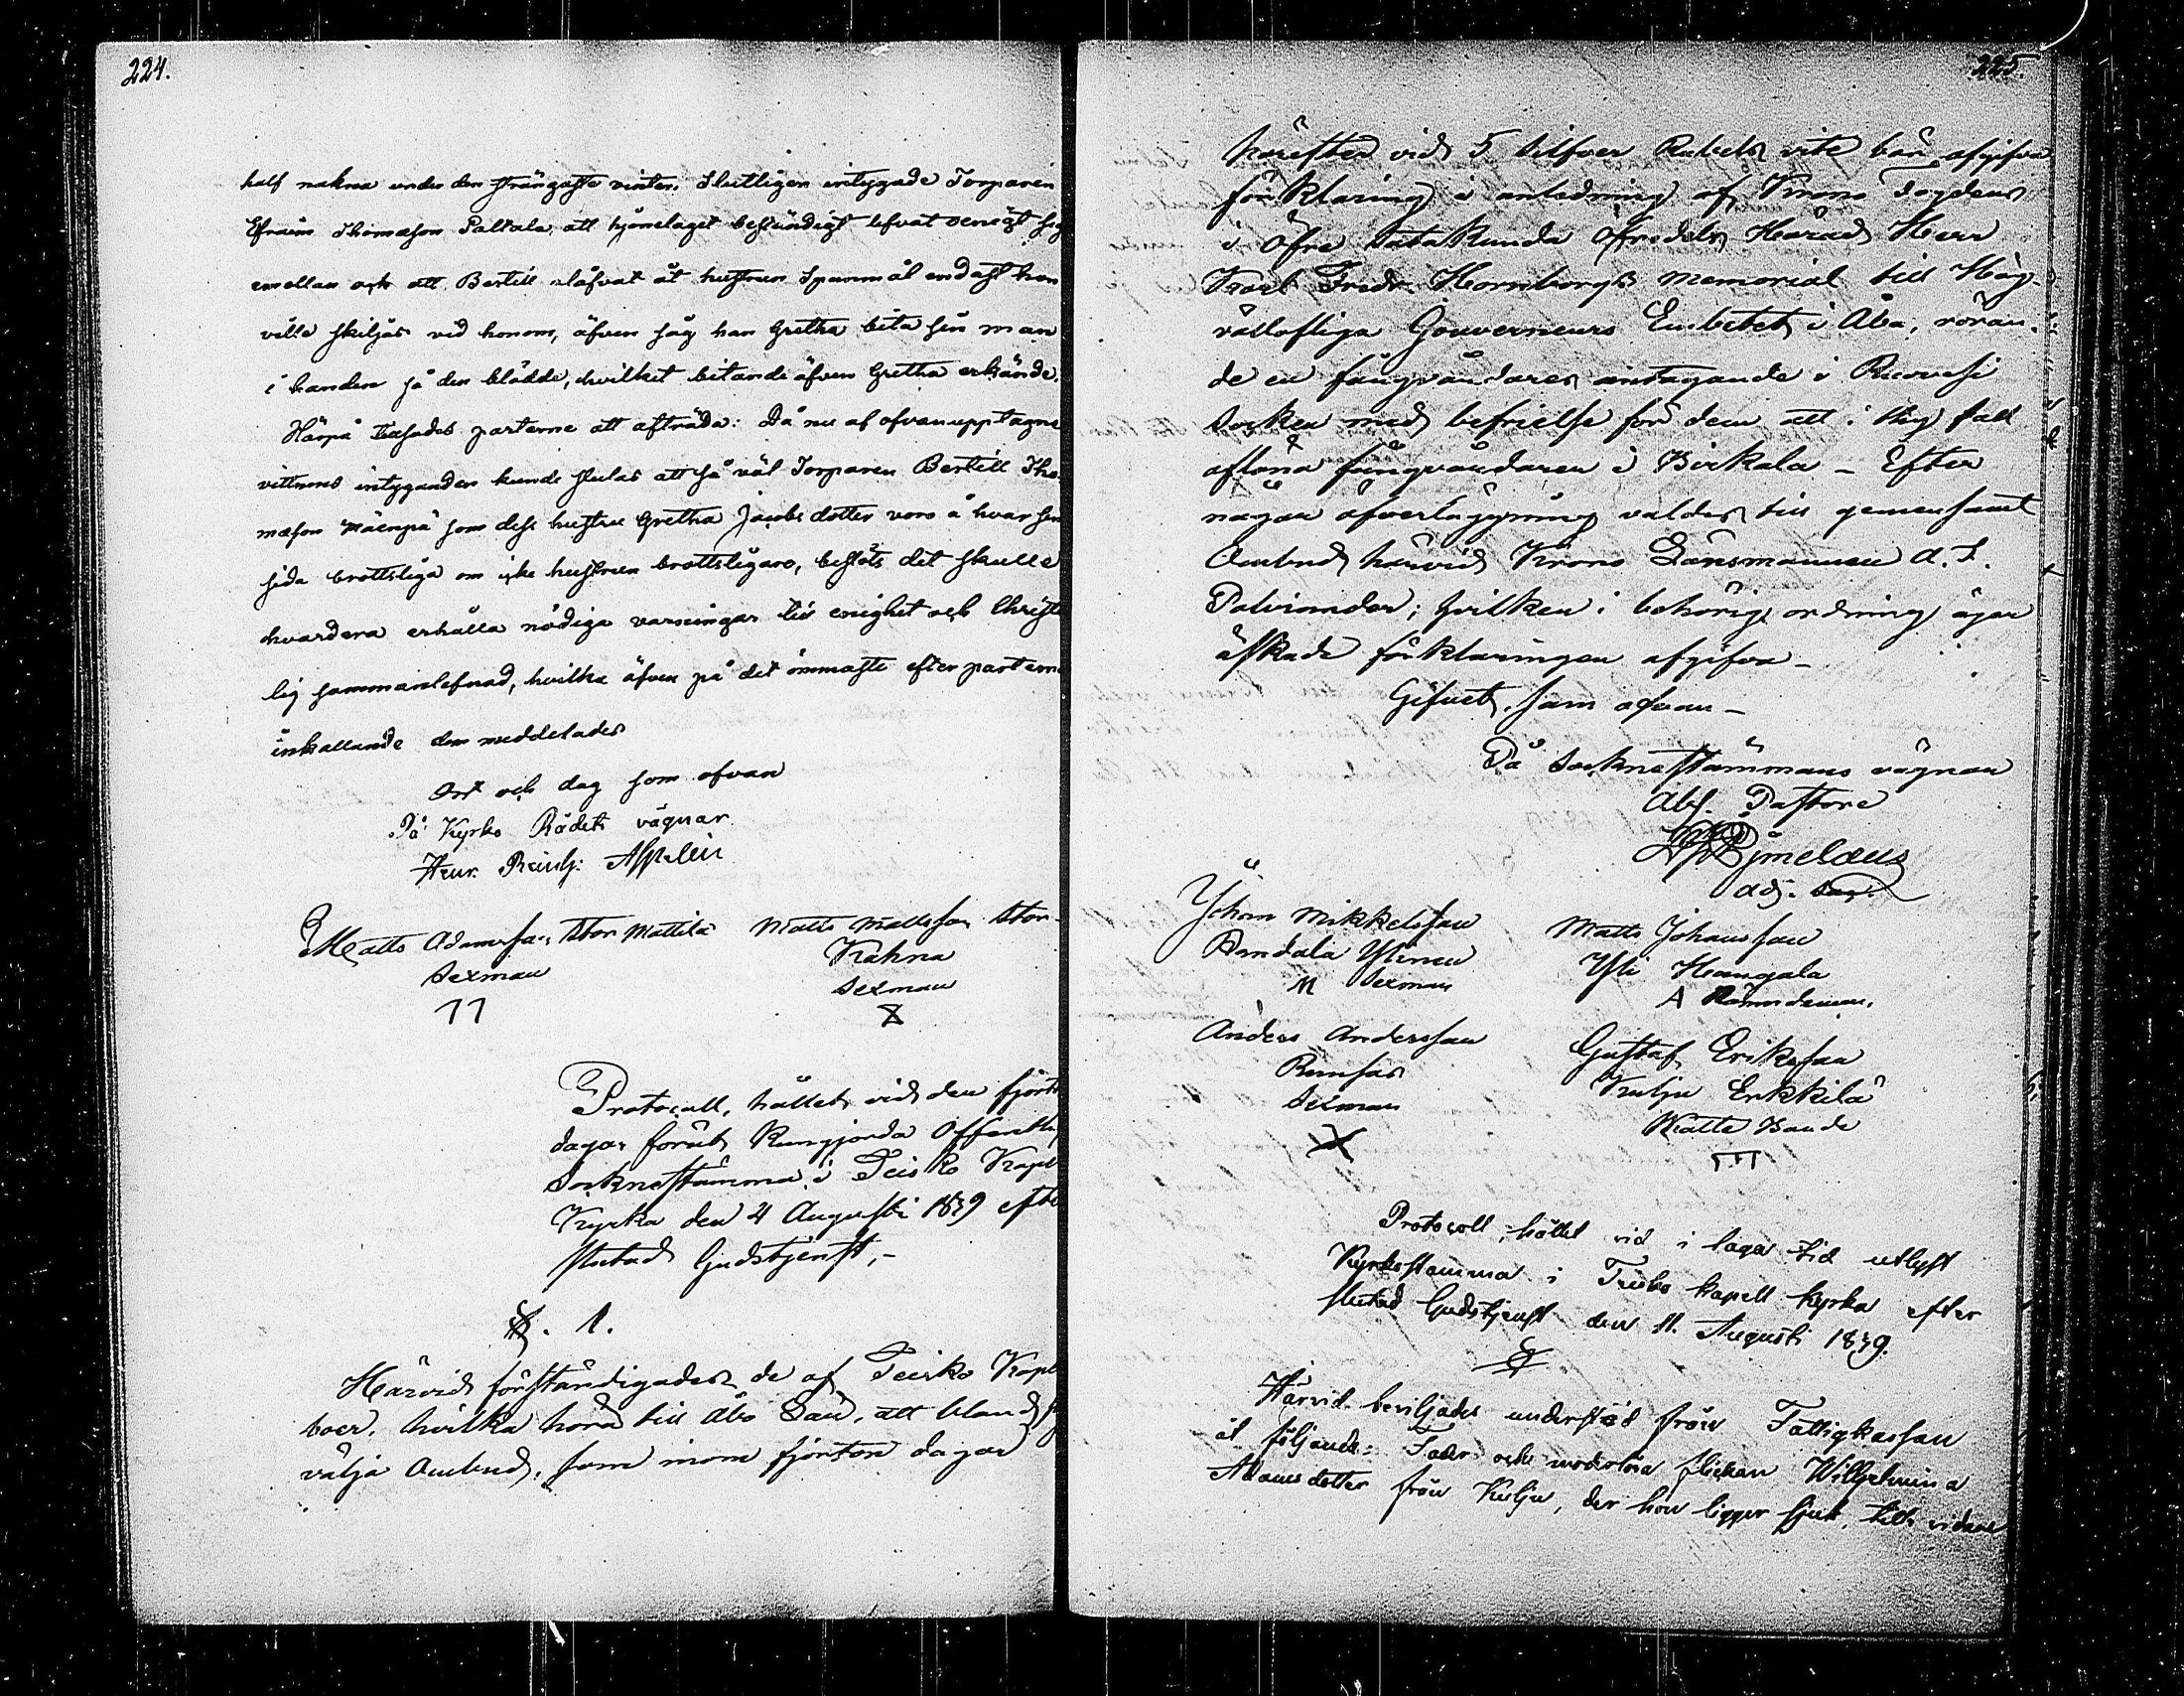 224.
half nakna under den strängaste vinter. Slutligen intygade Torparen
Efraim Thomasson Paltala, att hjonelaget beständigt lefvat oenigt sig
emellan och att Bertill utlåfvat åt hustrun Spanmål endast hon
ville skiljas vid honom, äfven såg han Gretha bita sin man
i handen så den blödde, hvilket bitande äfven Gretha erkände.
Härpå tillsades parterne att afträda: Då nu af ofvanupptagne
vittnens intyganden kunde slutas att så väl Torparen Bertill Tho-
masson Mäenpä som dess hustru Gretha Jacobsdotter voro å hvar sin
sida brottsliga om icke hustrun brottsligare, beslöts det skulle
hvardera erhålla nödiga varningar till enighet och Christe
lig sammanlefnad, hvilka äfven på det ömmaste efter parterne
inkallande dem meddelades
Ort och dag som ofvan
På Kyrko Rådets vägnar
Henr. Reinh: Aspelin
Matts Adamsson Stor Mattila Matts Mattsson Stor-
Kahna
Sexman
Sexman
Protocoll, hållet vid den fjorto
dagar förut kungjorda Offentlig
Socknestämma i Teisko Kapell
Kyrka den 4 Augusti 1839 efter
slutad Gudstjenst,-
§. 1.
Härvid förständigades de af Teisko Kapell
boer, hvilka höra till Åbo Län, att bland sig
välja Ombud, som inom fjorton dagar
225.
härefter vid 5 Silfver Rubels vite bör afgifva
förklaring i anledning af Krono Fogdens
i Öfre Satakunda Öfredels Härad Herr
Karl Fredr. Hornborgs memorial till Hög-
vällofliga Gouverneurs Embetet i Åbo, röran-
de en fångvaktares antagande i Ruovesi
Socken med befrielse för dem att i slig fall
aflöna fångvaktaren i Birkala - Efter
någon öfverläggning valdes till gemensamt
Ombud härvid Krono Länsmannen A. F.
Palviander; hvilken i behörig ordning äger
äskade förklaringen afgifva-
Gifvet, som ofvan-
På Socknestämmans vägnar
Abs. Pastore
Bjmelæus
Adj. Sac.
Johan Mikkelsson
Pendala Ylinen
M Sexman
Matts Johansson
Yli Haangala
A Nämndeman.
Anders Andersson
Runsas
Sexman
Gustaf Eriksson
Kulju Erkkilä
Protocoll, hållet vid i laga tid utlyst
Kyrkostämma i Teisko kapell kyrka efter
slutad Gudstjenst den 11. Augusti 1839.
§
Härvid beviljades understöd från Fattigkassan
åt följande: Fader och moderlösa flickan Wilhelmina
Adamsdotter från Kulju, der hon ligger sjuk, till vidare